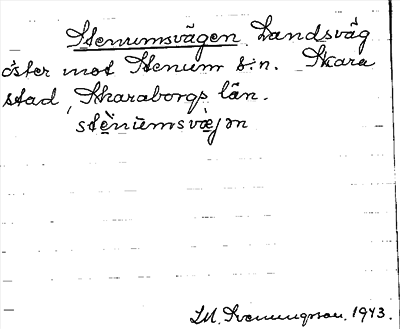 Stenumsvägen. Landsväg
öster mot Stenum s:n. Skara
stad, Skaraborgs län.
stènùmsvæ̀jən
M. Svenungsson. 1943.